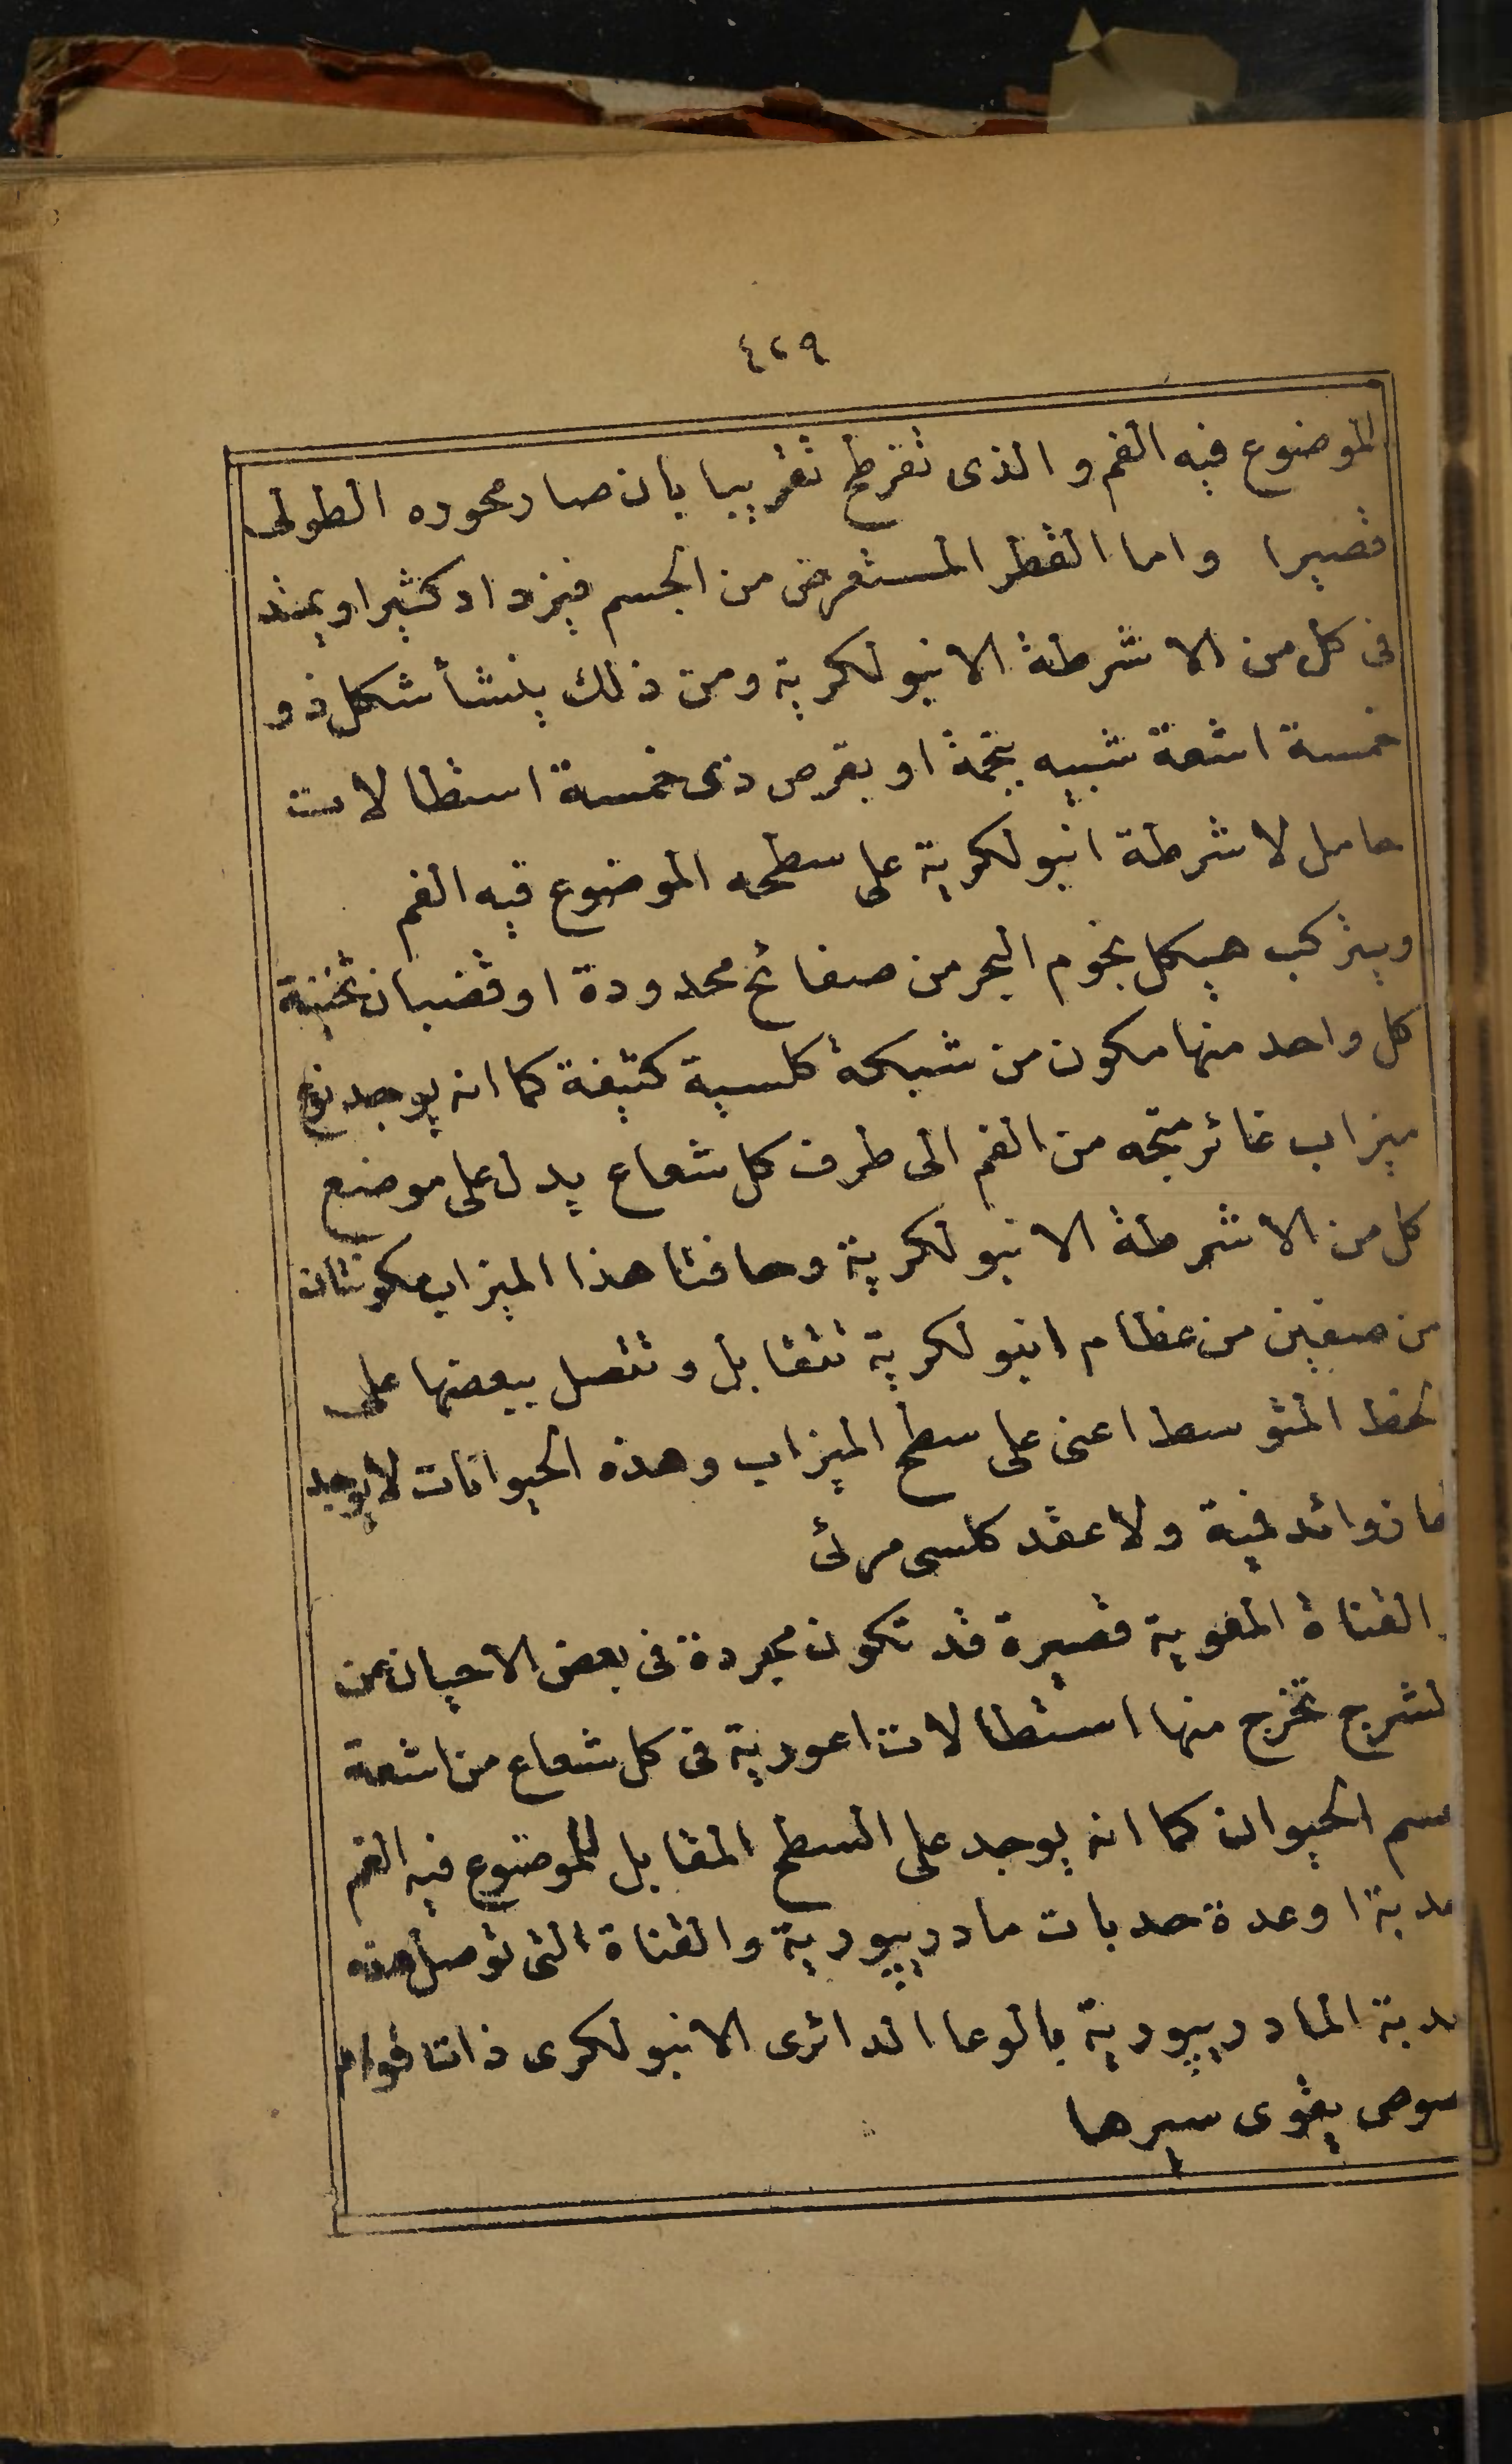 ٤٢٩
الموضوع فيه الفم والذى تفرطح تقريبا بان صار محوره الطولى
قصيرا واما القطر المستعرض من الجسم فيزداد كثيرا ويمتد
فى كل من الاشرطة الانبولكرية ومن ذلك ينشأ شكل ذو
خمسة اشعة شبيه بنجمة او بقرص ذى خمسة استطالات
حامل لاشرطة انبولكرية على سطحه الموضوع فيه الفم
ويتركب هيكل نجوم البحر من صفائح محدودة او قضبان ثخينة
كل واحد منها مكون من شبكة كلسية كثيفة كما انه يوجد نوع
ميزاب غائر متجه من الفم الى طرف كل شعاع يدل على موضع
كل من الاشرطة الانبولكرية وحافتا هذا الميزاب مكونتان
من صفين من عظام انبولكرية تتقابل وتتصل ببعضها على
الخط المتوسط اعنى على سطح الميزاب وهذه الحيوانات لا يوجد
لها زوائد فمية ولا عقد كلسى مرئ
والقناة المعوية قصيرة قد تكون مجردة فى بعض الاحيان عن
الشرج تخرج منها استطالات اعورية فى كل شعاع من اشعة
جسم الحيوان كما انه يوجد على السطح المقابل للموضوع فيه الفم
حدبة او عدة حدبات مادريپورية والقناة التى توصل هذه
الحدبة المادريپورية بالوعا الدائرى الانبولكرى ذات قوام
يقوى سيرها